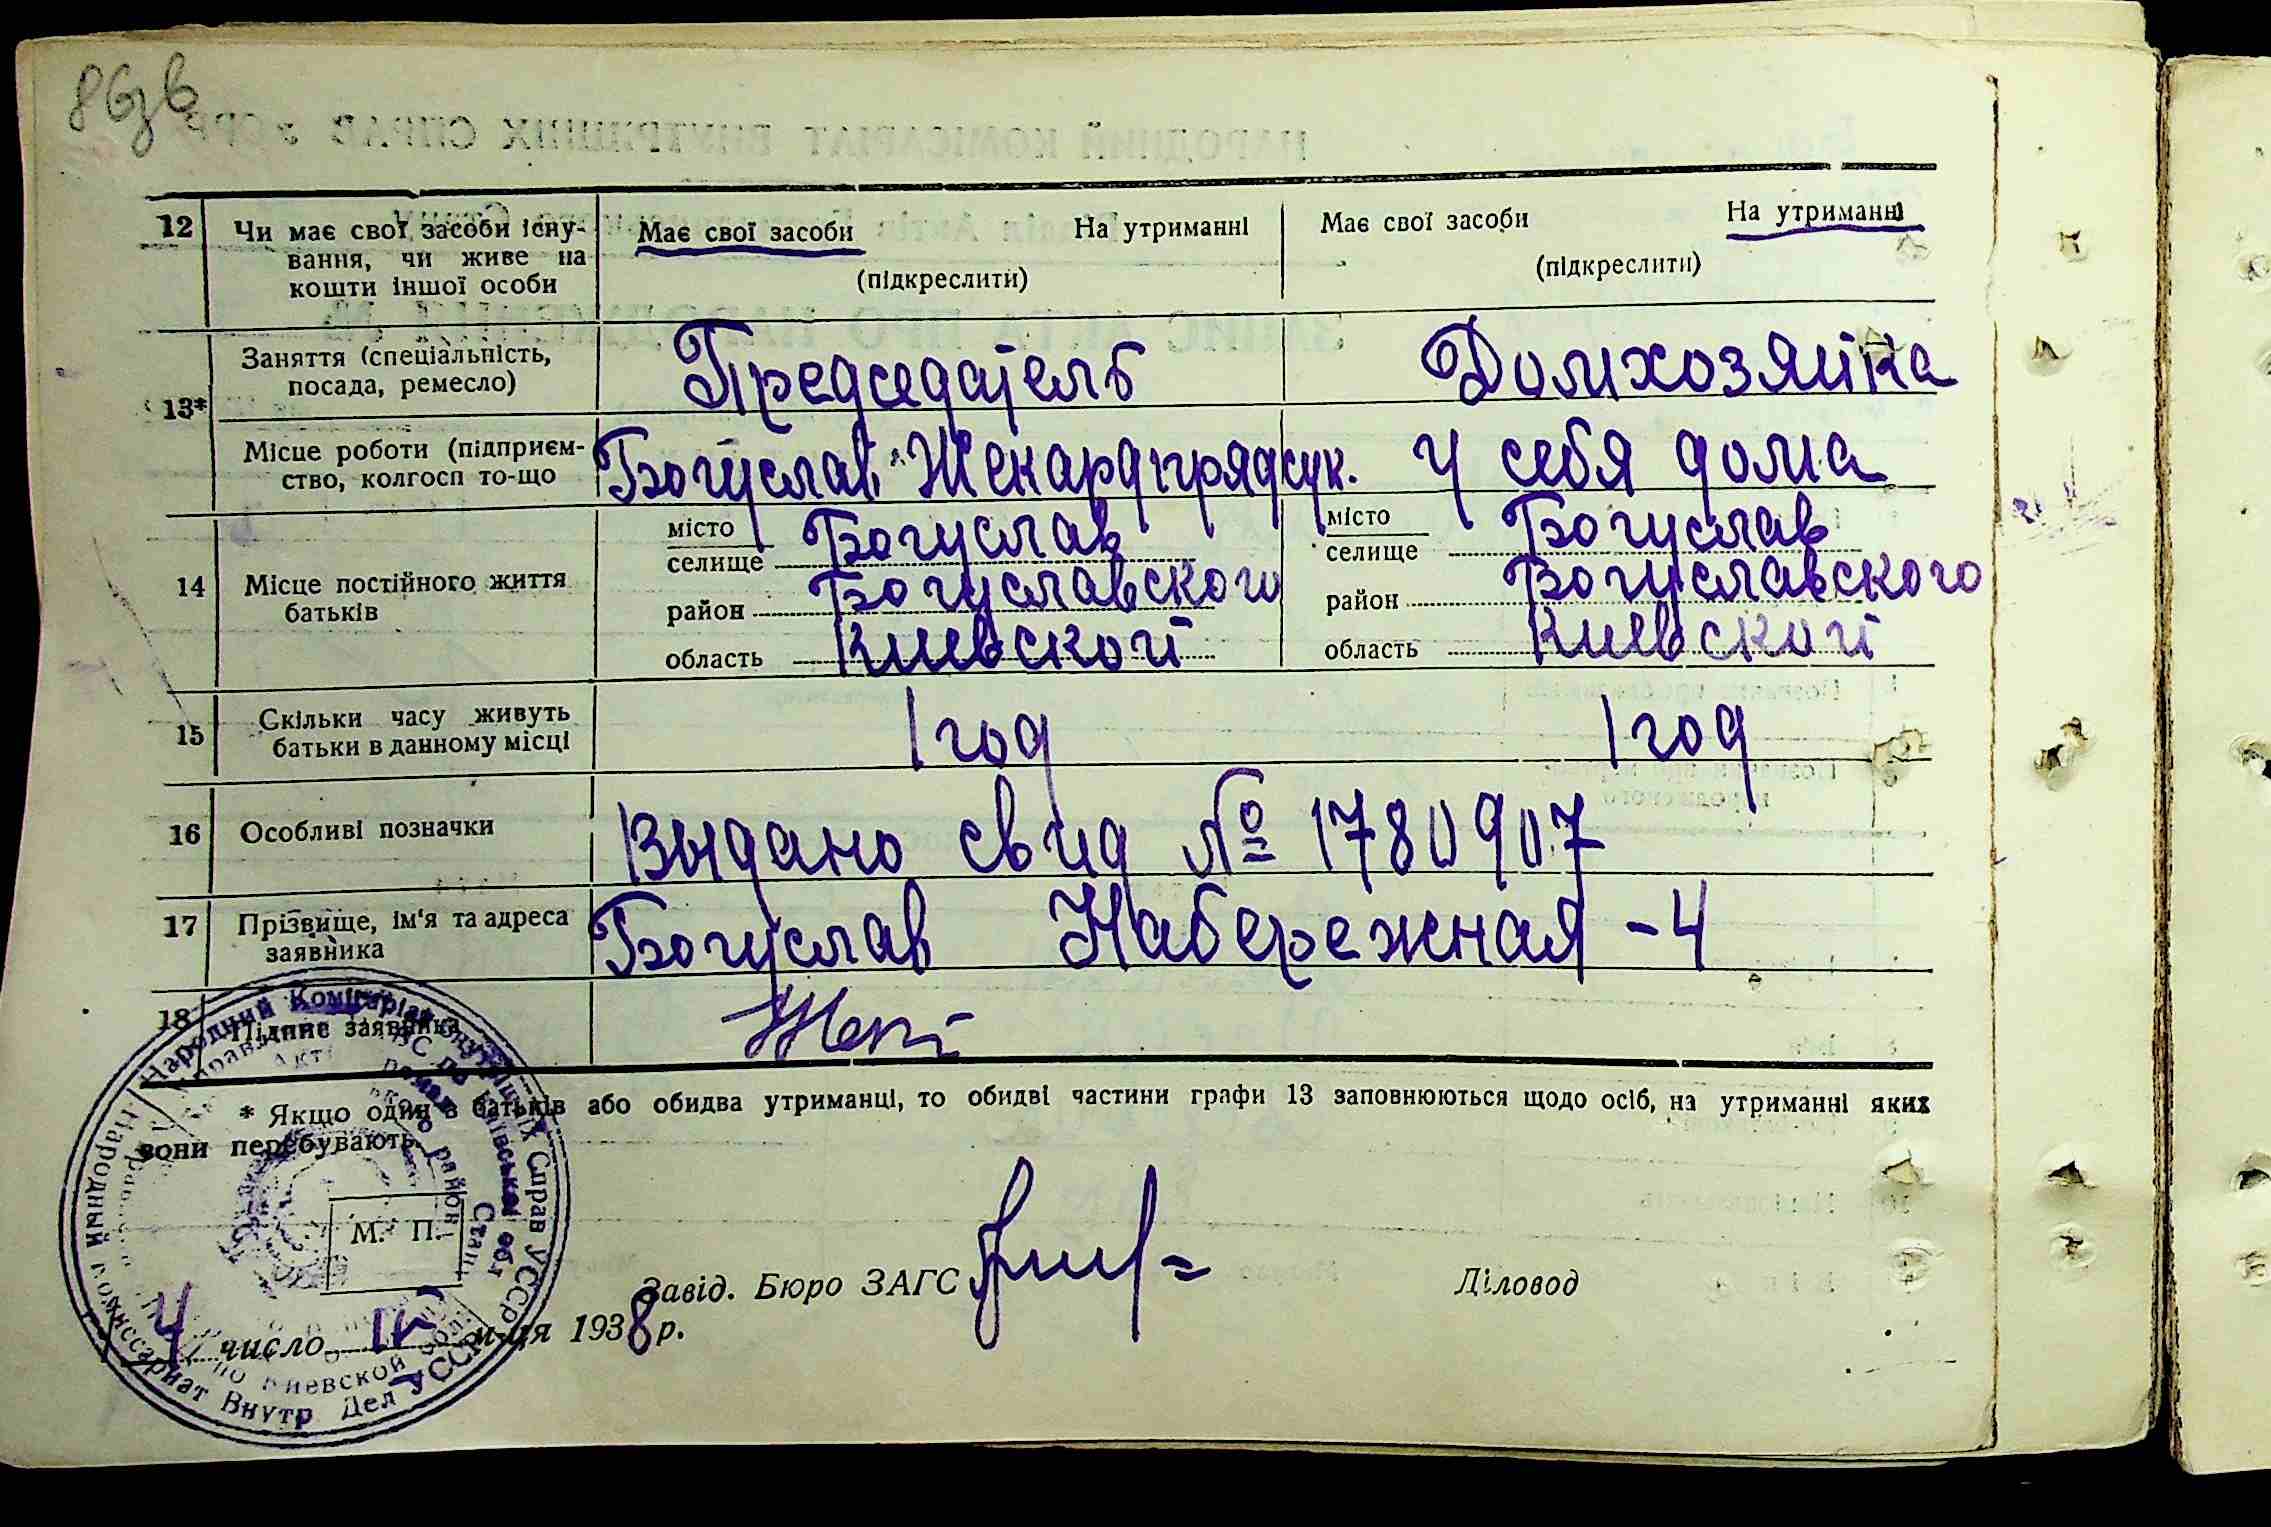 12 Чи має свої засоби існу-
вання, чи живе на
кошти іншої особи
Має свої засоби На утриманні
(підкреслити)
Має свої засоби На утриманні
(підкреслити)
13*
Заняття (спеціальність,
посада, ремесло)
Председатель
Домхозяйка
Місце роботи (підприєм-
ство, колгосп то-що
Богуслав.
У себя дома
14 Місце постійного життя
батьків
місто
селище Богуслав
район Богуславского
область Киевской
місто
селище Богуслав
район Богуславского
область Киевской
15 Скільки часу живуть
батьки в данному місці
1 год
1 год
16 Особливі позначки
Выдано свид № 1780907
17 Прізвище, ім'я та адреса
заявника
Богуслав Набережная - 4
18 Підпис заявника
* Якщо один з батьків або обидва утриманці, то обидві частини графи 13 заповнюються щодо осіб, на утриманні яких
вони перебувають.
М. П.
Завід. Бюро ЗАГС
Діловод
4 число IV м-ця 1938 р.
Народний Комісаріат Внутрішніх Справ УССР
Народный Комиссариат Внутр Дел УССР